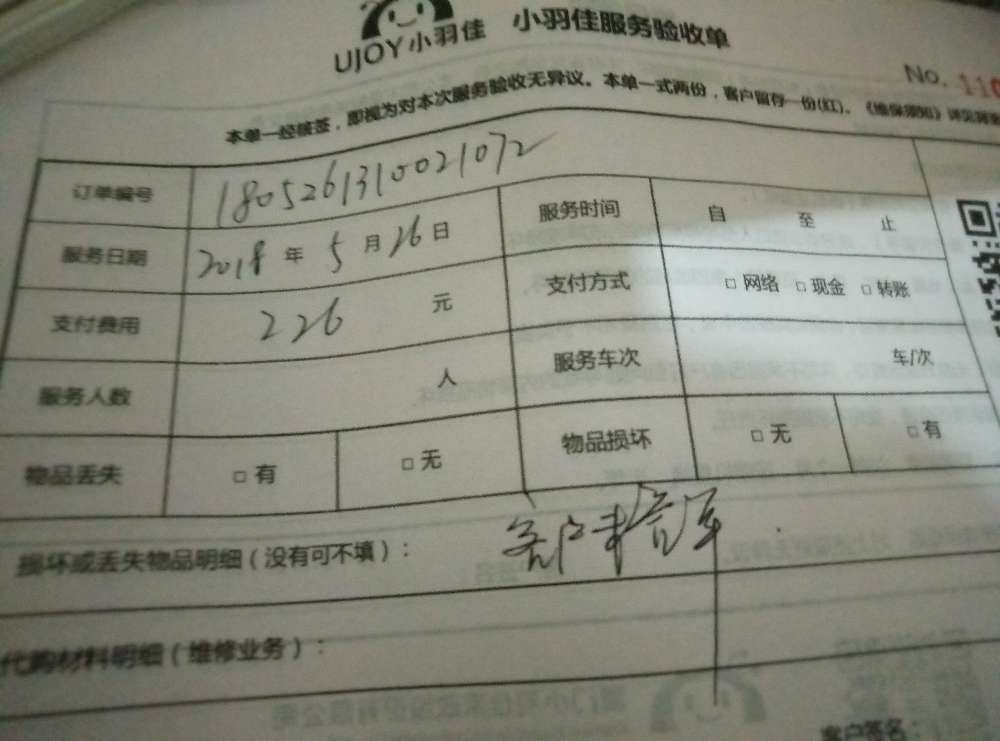 UJOY小羽佳 小羽佳服务验收单
No. 110
本单一经核签，即视为对本次服务验收无异议。本单一式两份，客户留存一份(红)。《维保须知》详见背面
订单编号 1805261310021072
服务日期 2018 年 5 月 26 日 服务时间 自 至 止
支付费用 226 元 支付方式 □ 网络 □ 现金 □ 转账
服务人数 人 服务车次 车/次
物品丢失 □ 有 □ 无 物品损坏 □ 无 □ 有
损坏或丢失物品明细（没有可不填）： 客户未签单
代购材料明细（维修业务）：
客户签名：